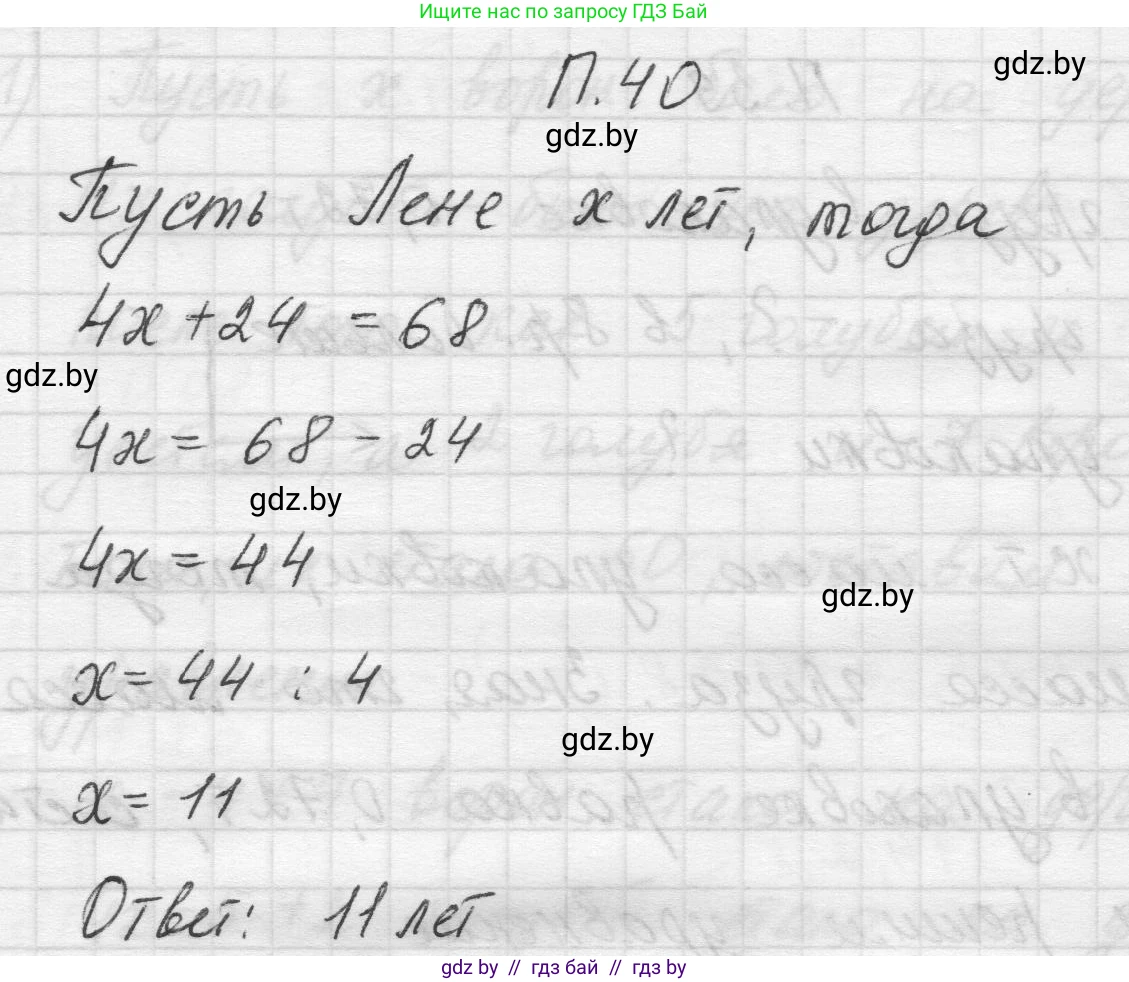 Ищите нас по запросу ГДЗ Бай
gdz.by
П.40
gdz.by
Пусть Лене x лет, тогда
4x + 24 = 68
gdz.by
4x = 68 - 24
gdz.by
4x = 44
gdz.by
x = 44 : 4
gdz.by
x = 11
Ответ: 11 лет
gdz by // гдз бай // гdз by